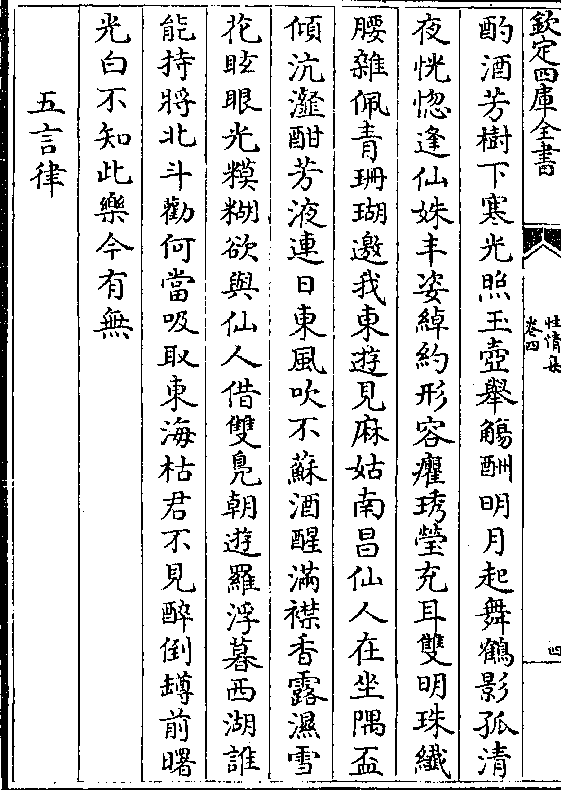 欽定四庫全書
性情集
卷四
四
酌酒芳樹下寒光照玉壺舉觴酬明月起舞鶴影孤清
夜恍惚逢仙姝丰姿綽約形容癯琇瑩充耳雙明珠纖
腰雜佩青珊瑚邀我東遊見麻姑南昌仙人在坐隅盃
傾沆瀣酣芳液連日東風吹不蘇酒醒滿襟香露濕雪
花眩眼光糢糊欲與仙人借雙鳧朝遊羅浮暮西湖誰
能持將北斗勸何當吸取東海枯君不見醉倒罇前曙
光白不知此樂今有無
五言律